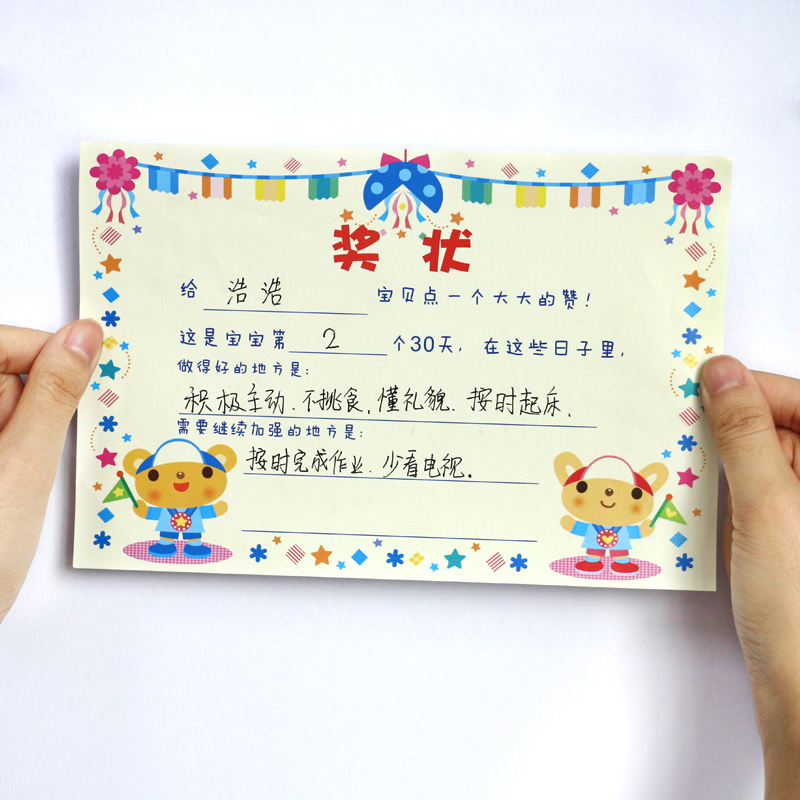 奖状
给 浩浩 宝贝点一个大大的赞!
这是宝宝第 2 个30天,在这些日子里,
做得好的地方是:
积极主动、不挑食、懂礼貌、按时起床、
需要继续加强的地方是:
按时完成作业、少看电视。